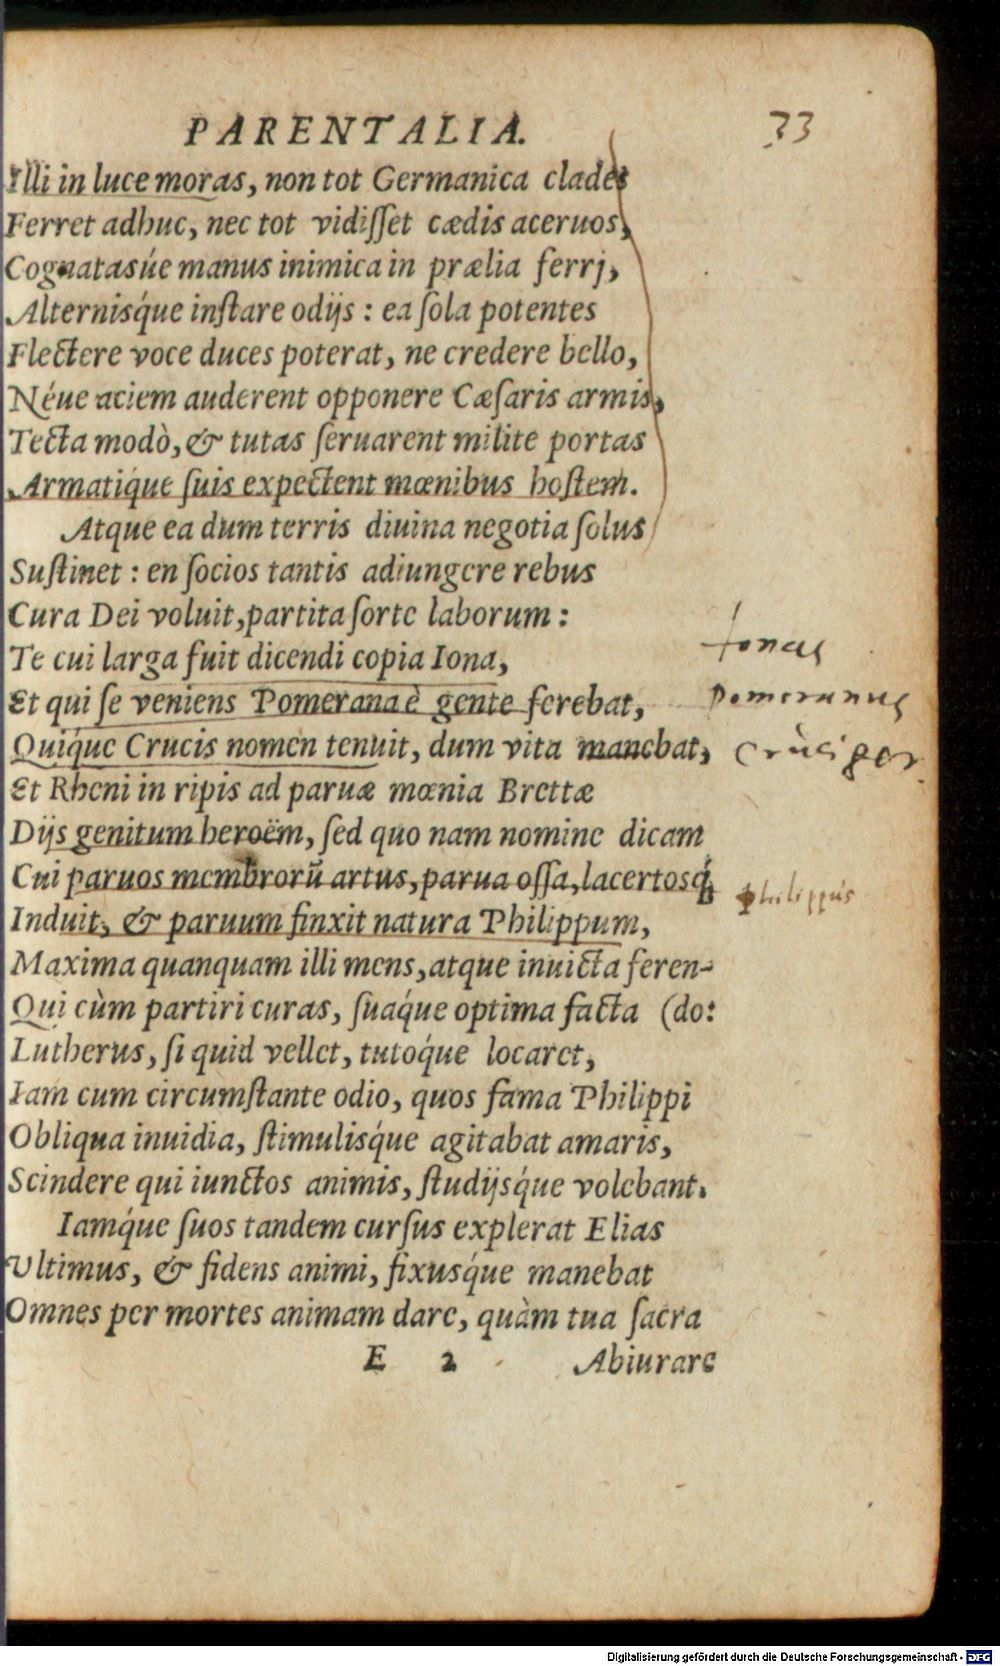 PARENTALIA.
33
Illi in luce moras, non tot Germanica clades
Ferret adhuc, nec tot vidiſſet cædis aceruos,
Cognatasúe manus inimica in prælia ferrj,
Alternisq́ue inſtare odijs : ea ſola potentes
Flectere voce duces poterat, ne credere bello,
Néue aciem auderent opponere Cæſaris armis,
Tecta modò, & tutas ſeruarent milite portas
Armatiq́ue ſuis expectent mœnibus hoſtem.
Atque ea dum terris diuina negotia ſolus
Suſtinet : en ſocios tantis adiungere rebus
Cura Dei voluit, partita ſorte laborum :
Te cui larga fuit dicendi copia Iona,
Ionas
Et qui ſe veniens Pomerana è gente ferebat,
Pomeranus
Quiq́ue Crucis nomen tenuit, dum vita manebat,
Cruciger
Et Rheni in ripis ad paruæ mœnia Brettæ
Dijs genitum heroëm, ſed quo nam nomine dicam
Cui paruos membrorũ artus, parua oſſa, lacertosq́;
Philippus
Induit, & paruum finxit natura Philippum,
Maxima quanquam illi mens, atque inuicta feren-
Qui cùm partiri curas, ſuaq́ue optima facta (do:
Lutherus, ſi quid vellet, tutoq́ue locaret,
Iam cum circumſtante odio, quos fama Philippi
Obliqua inuidia, ſtimulisq́ue agitabat amaris,
Scindere qui iunctos animis, ſtudijsq́ue volebant.
Iamq́ue ſuos tandem curſus explerat Elias
Vltimus, & fidens animi, fixusq́ue manebat
Omnes per mortes animam dare, quàm tua ſacra
E 2 Abiurare
Digitalisierung gefördert durch die Deutsche Forschungsgemeinschaft - DFG